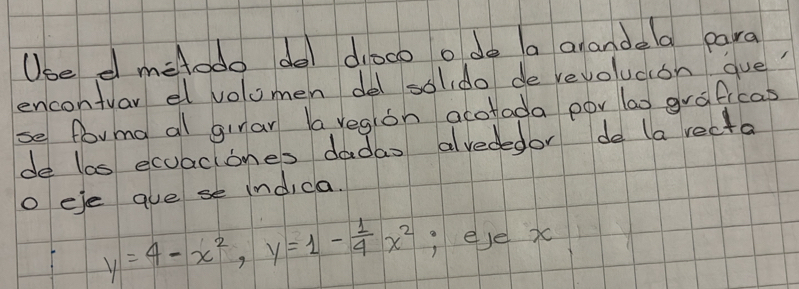 Use el método del disco o de la arandela para
encontrar el volumen del sólido de revolución que
se forma al girar la región acotada por las gráficas
de las ecuaciones dadas alrededor de la recta
o eje que se indica.
y = 4 - x², y = 1 - 1/4 x² ; eje x